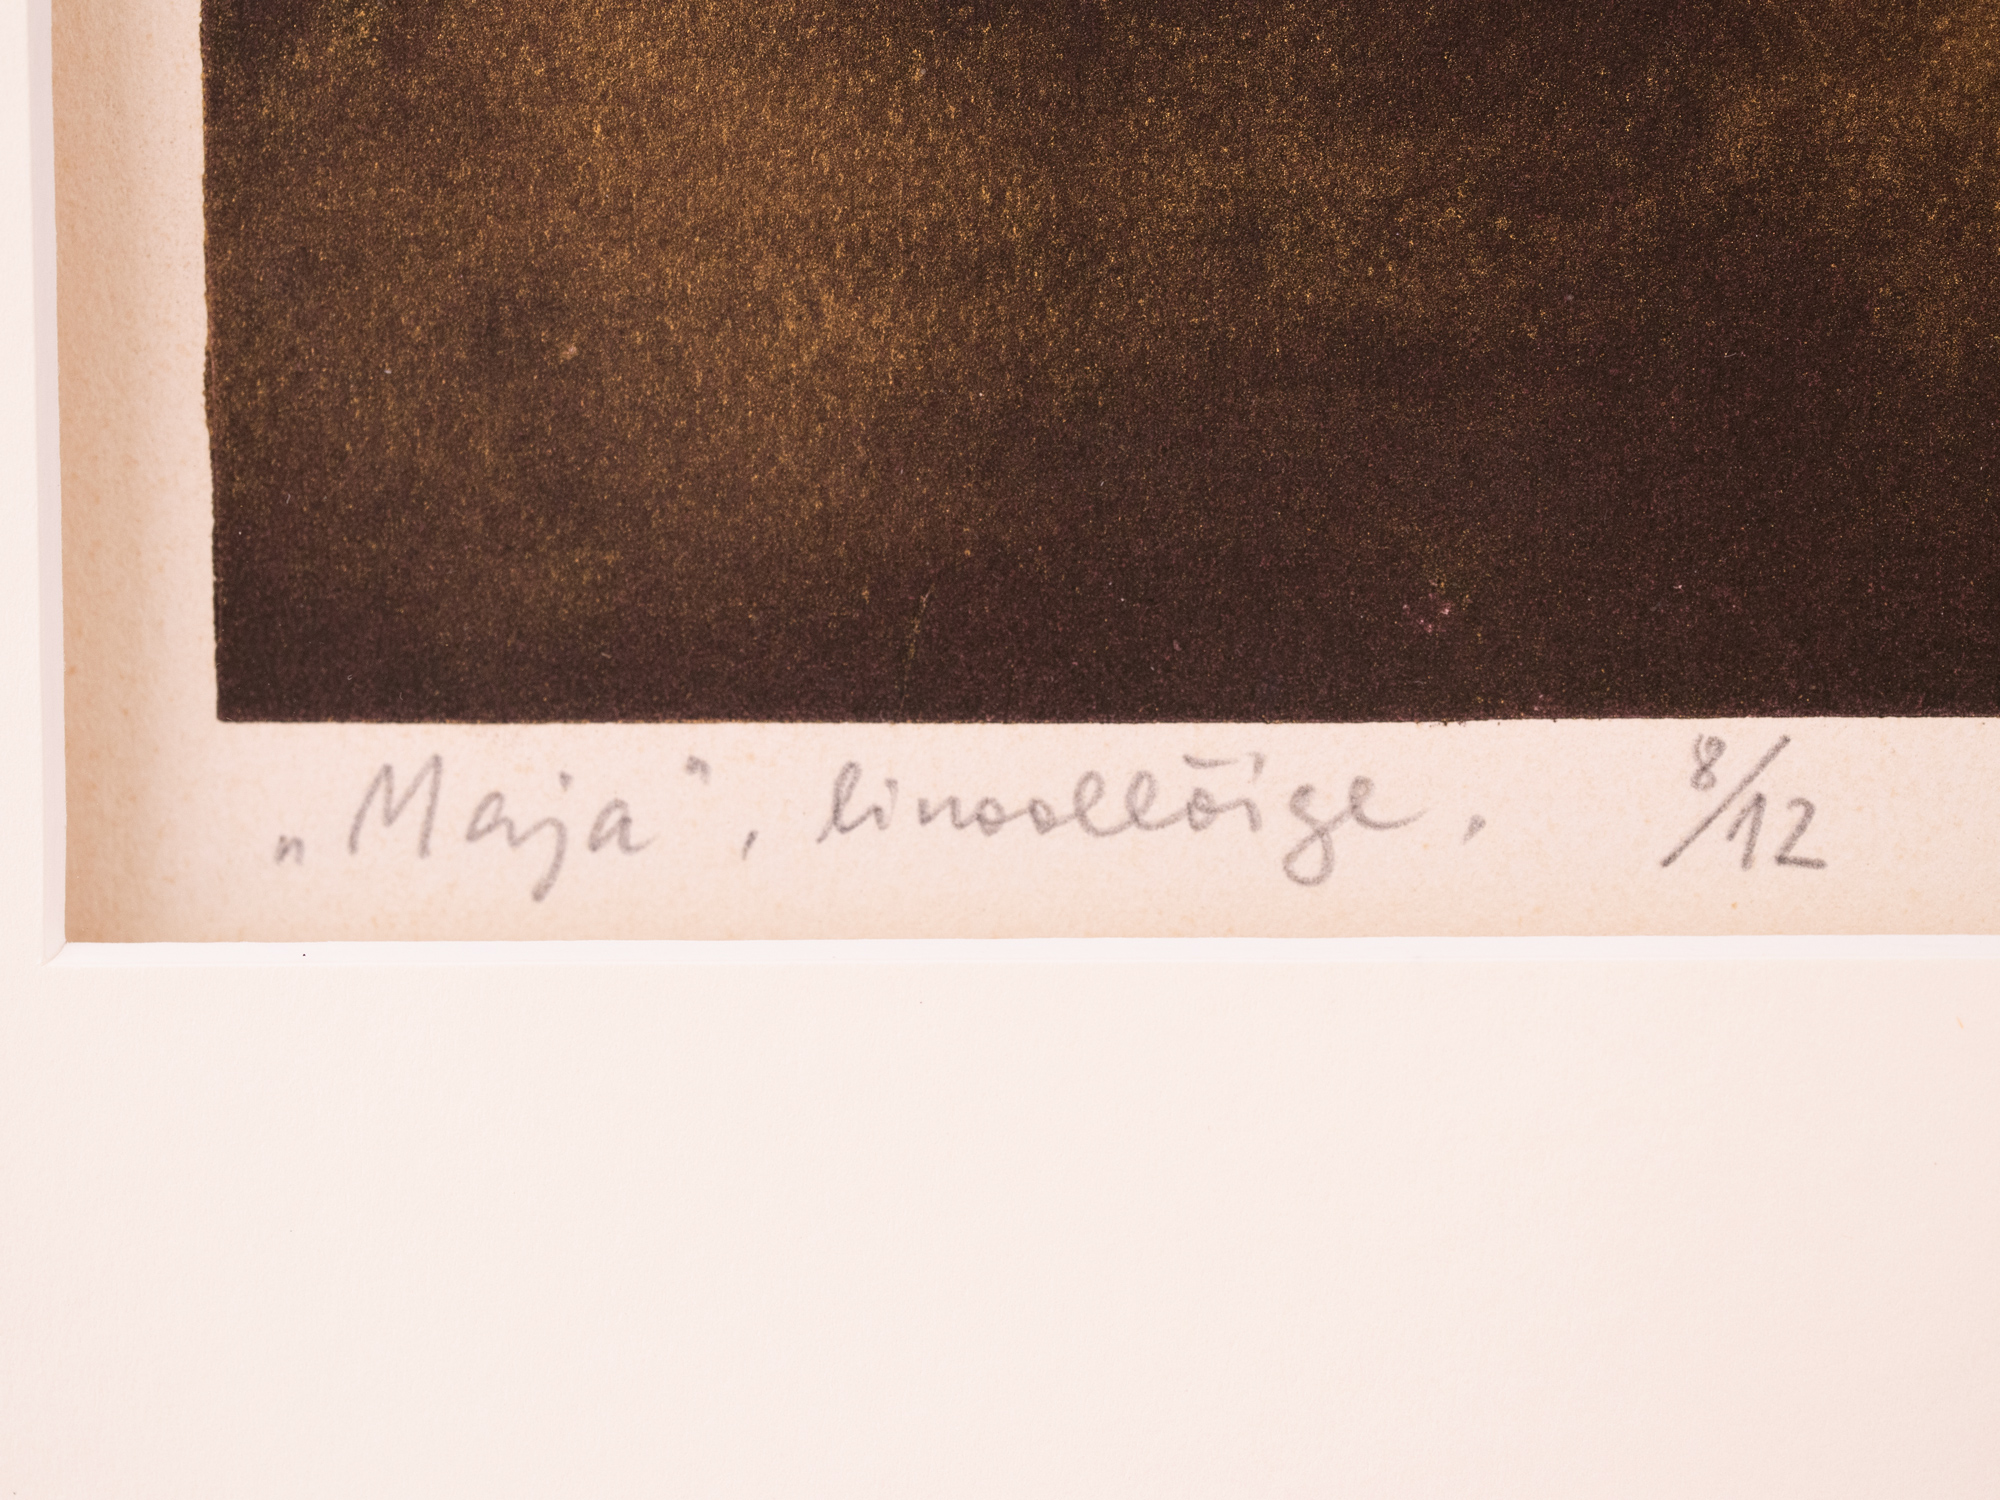 „Maja", linoollõige. 8/12